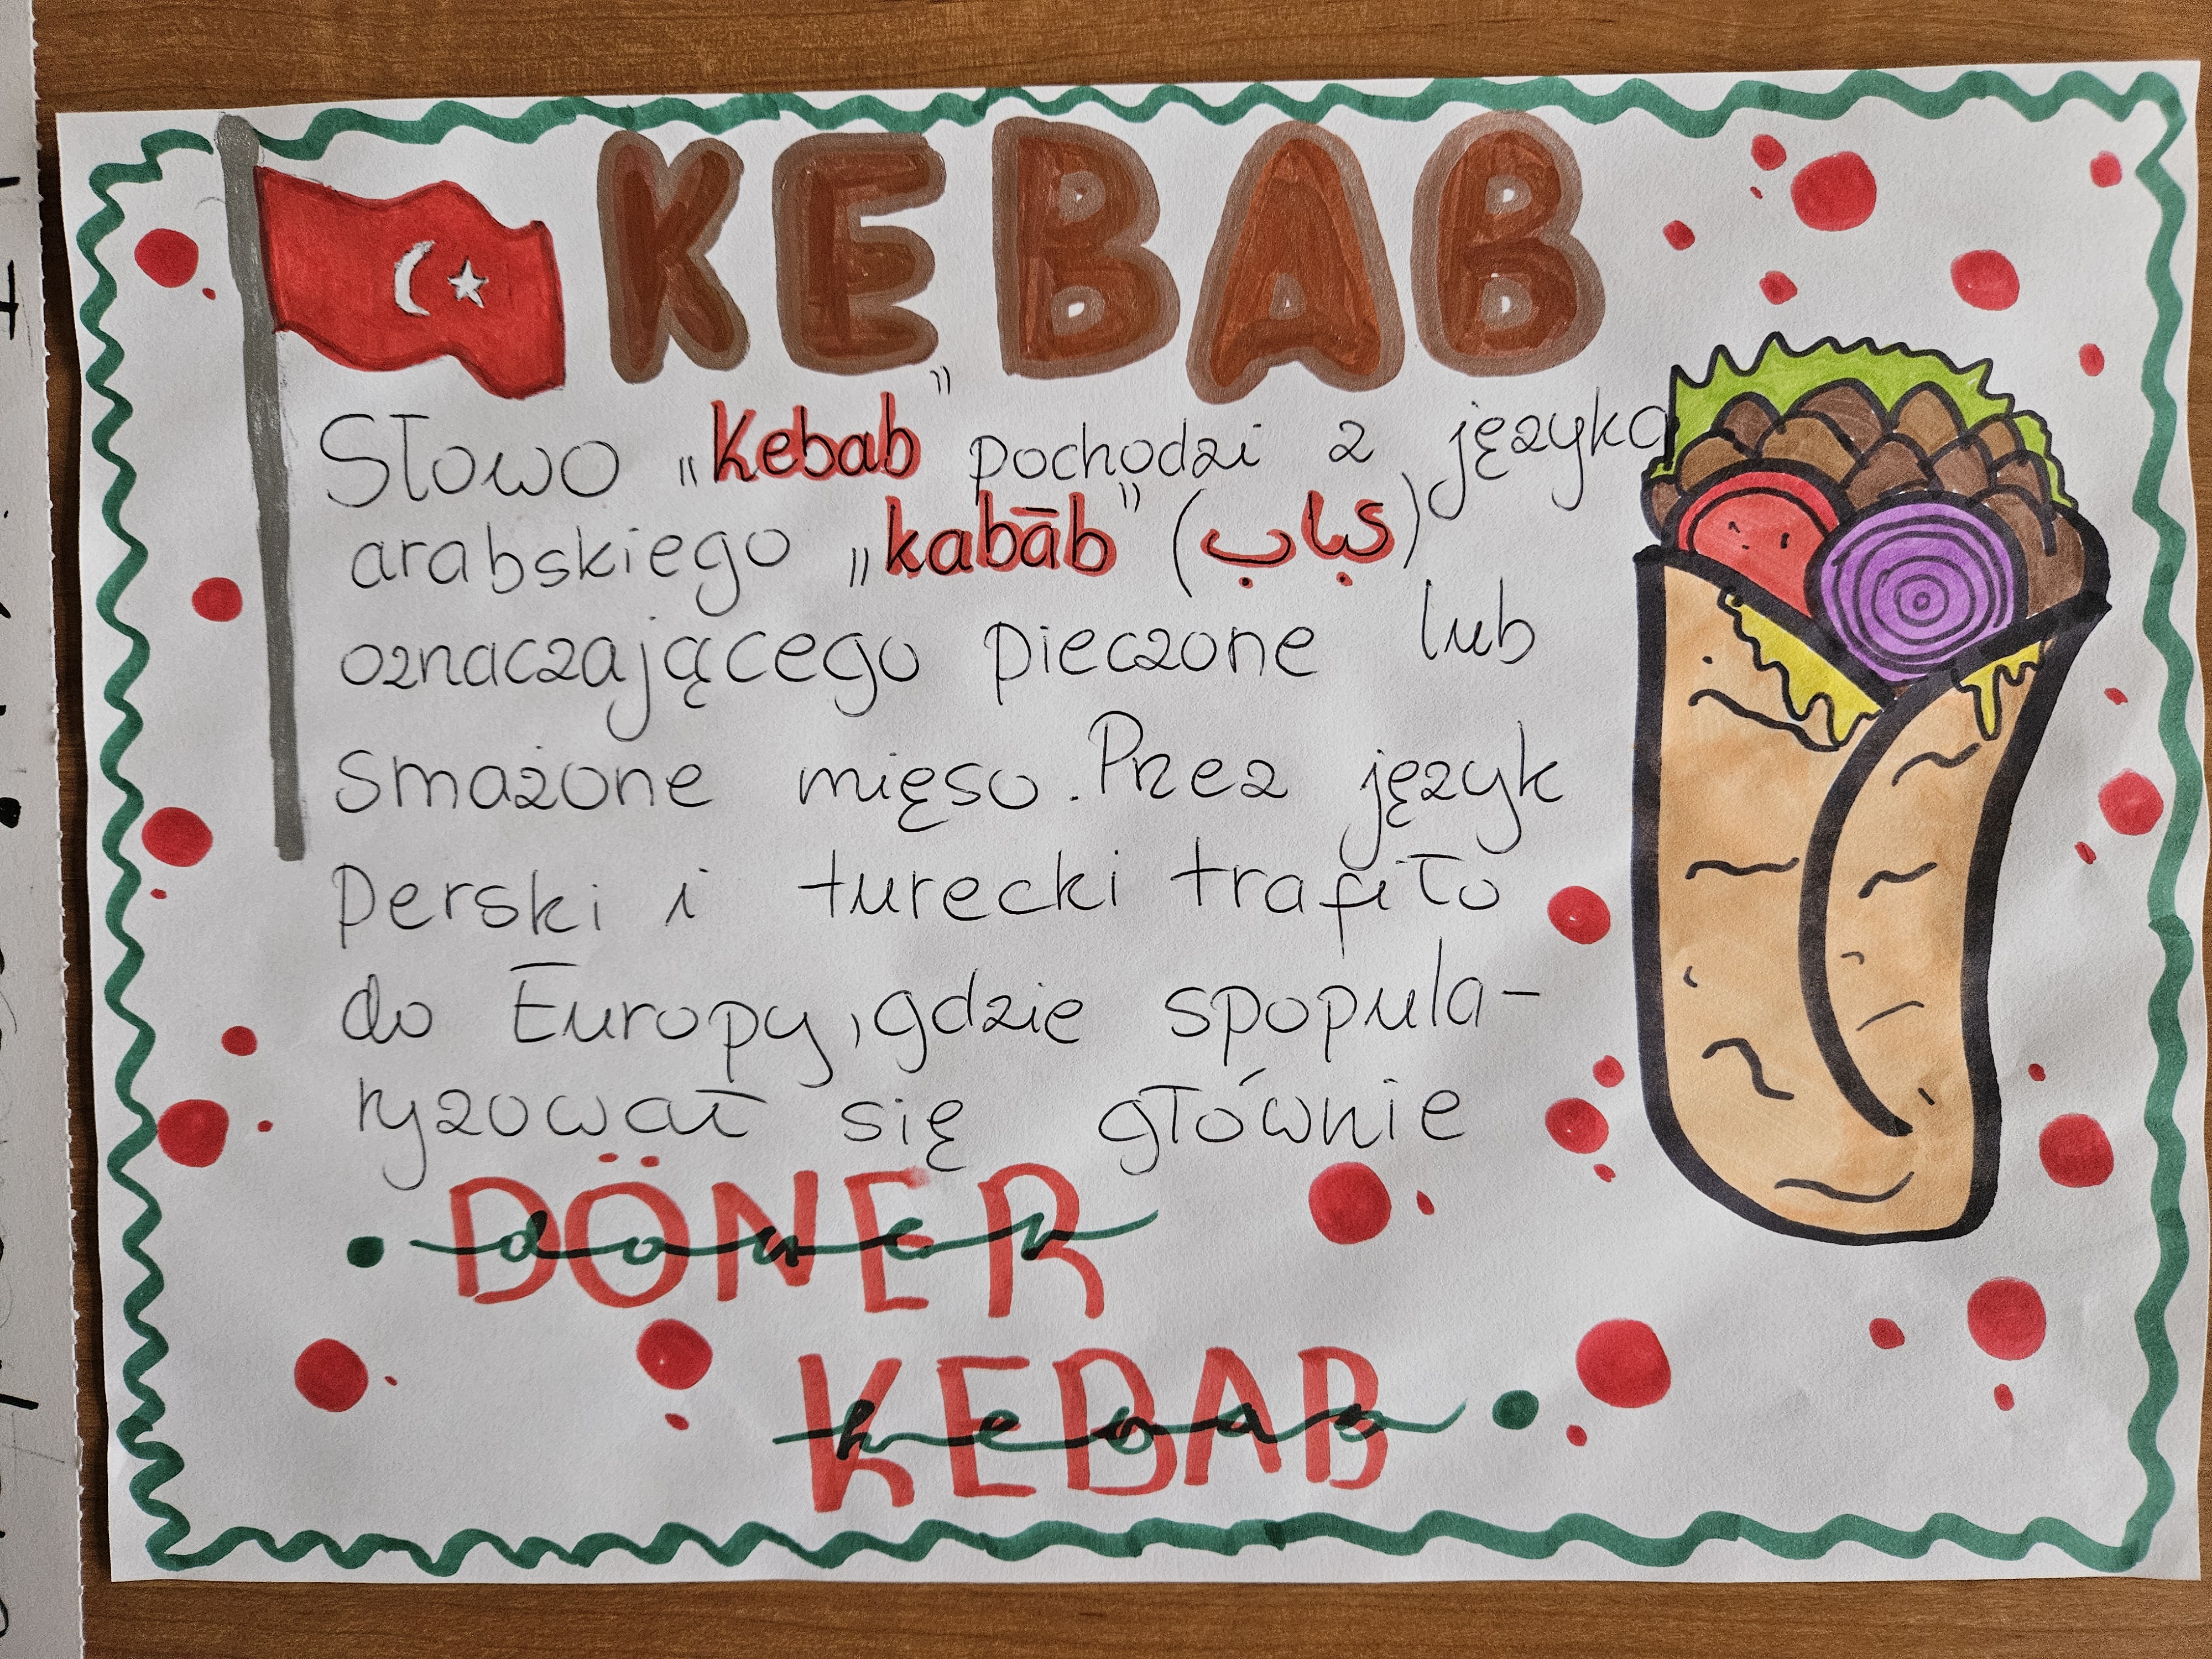 KEBAB
Słowo „Kebab" pochodzi z języka
arabskiego „kabāb" (كباب)
oznaczającego pieczone lub
smażone mięso. Przez język
Perski i turecki trafiło
do Europy, gdzie spopula-
ryzował się głównie
DÖNER
doner
KEBAB
kebab